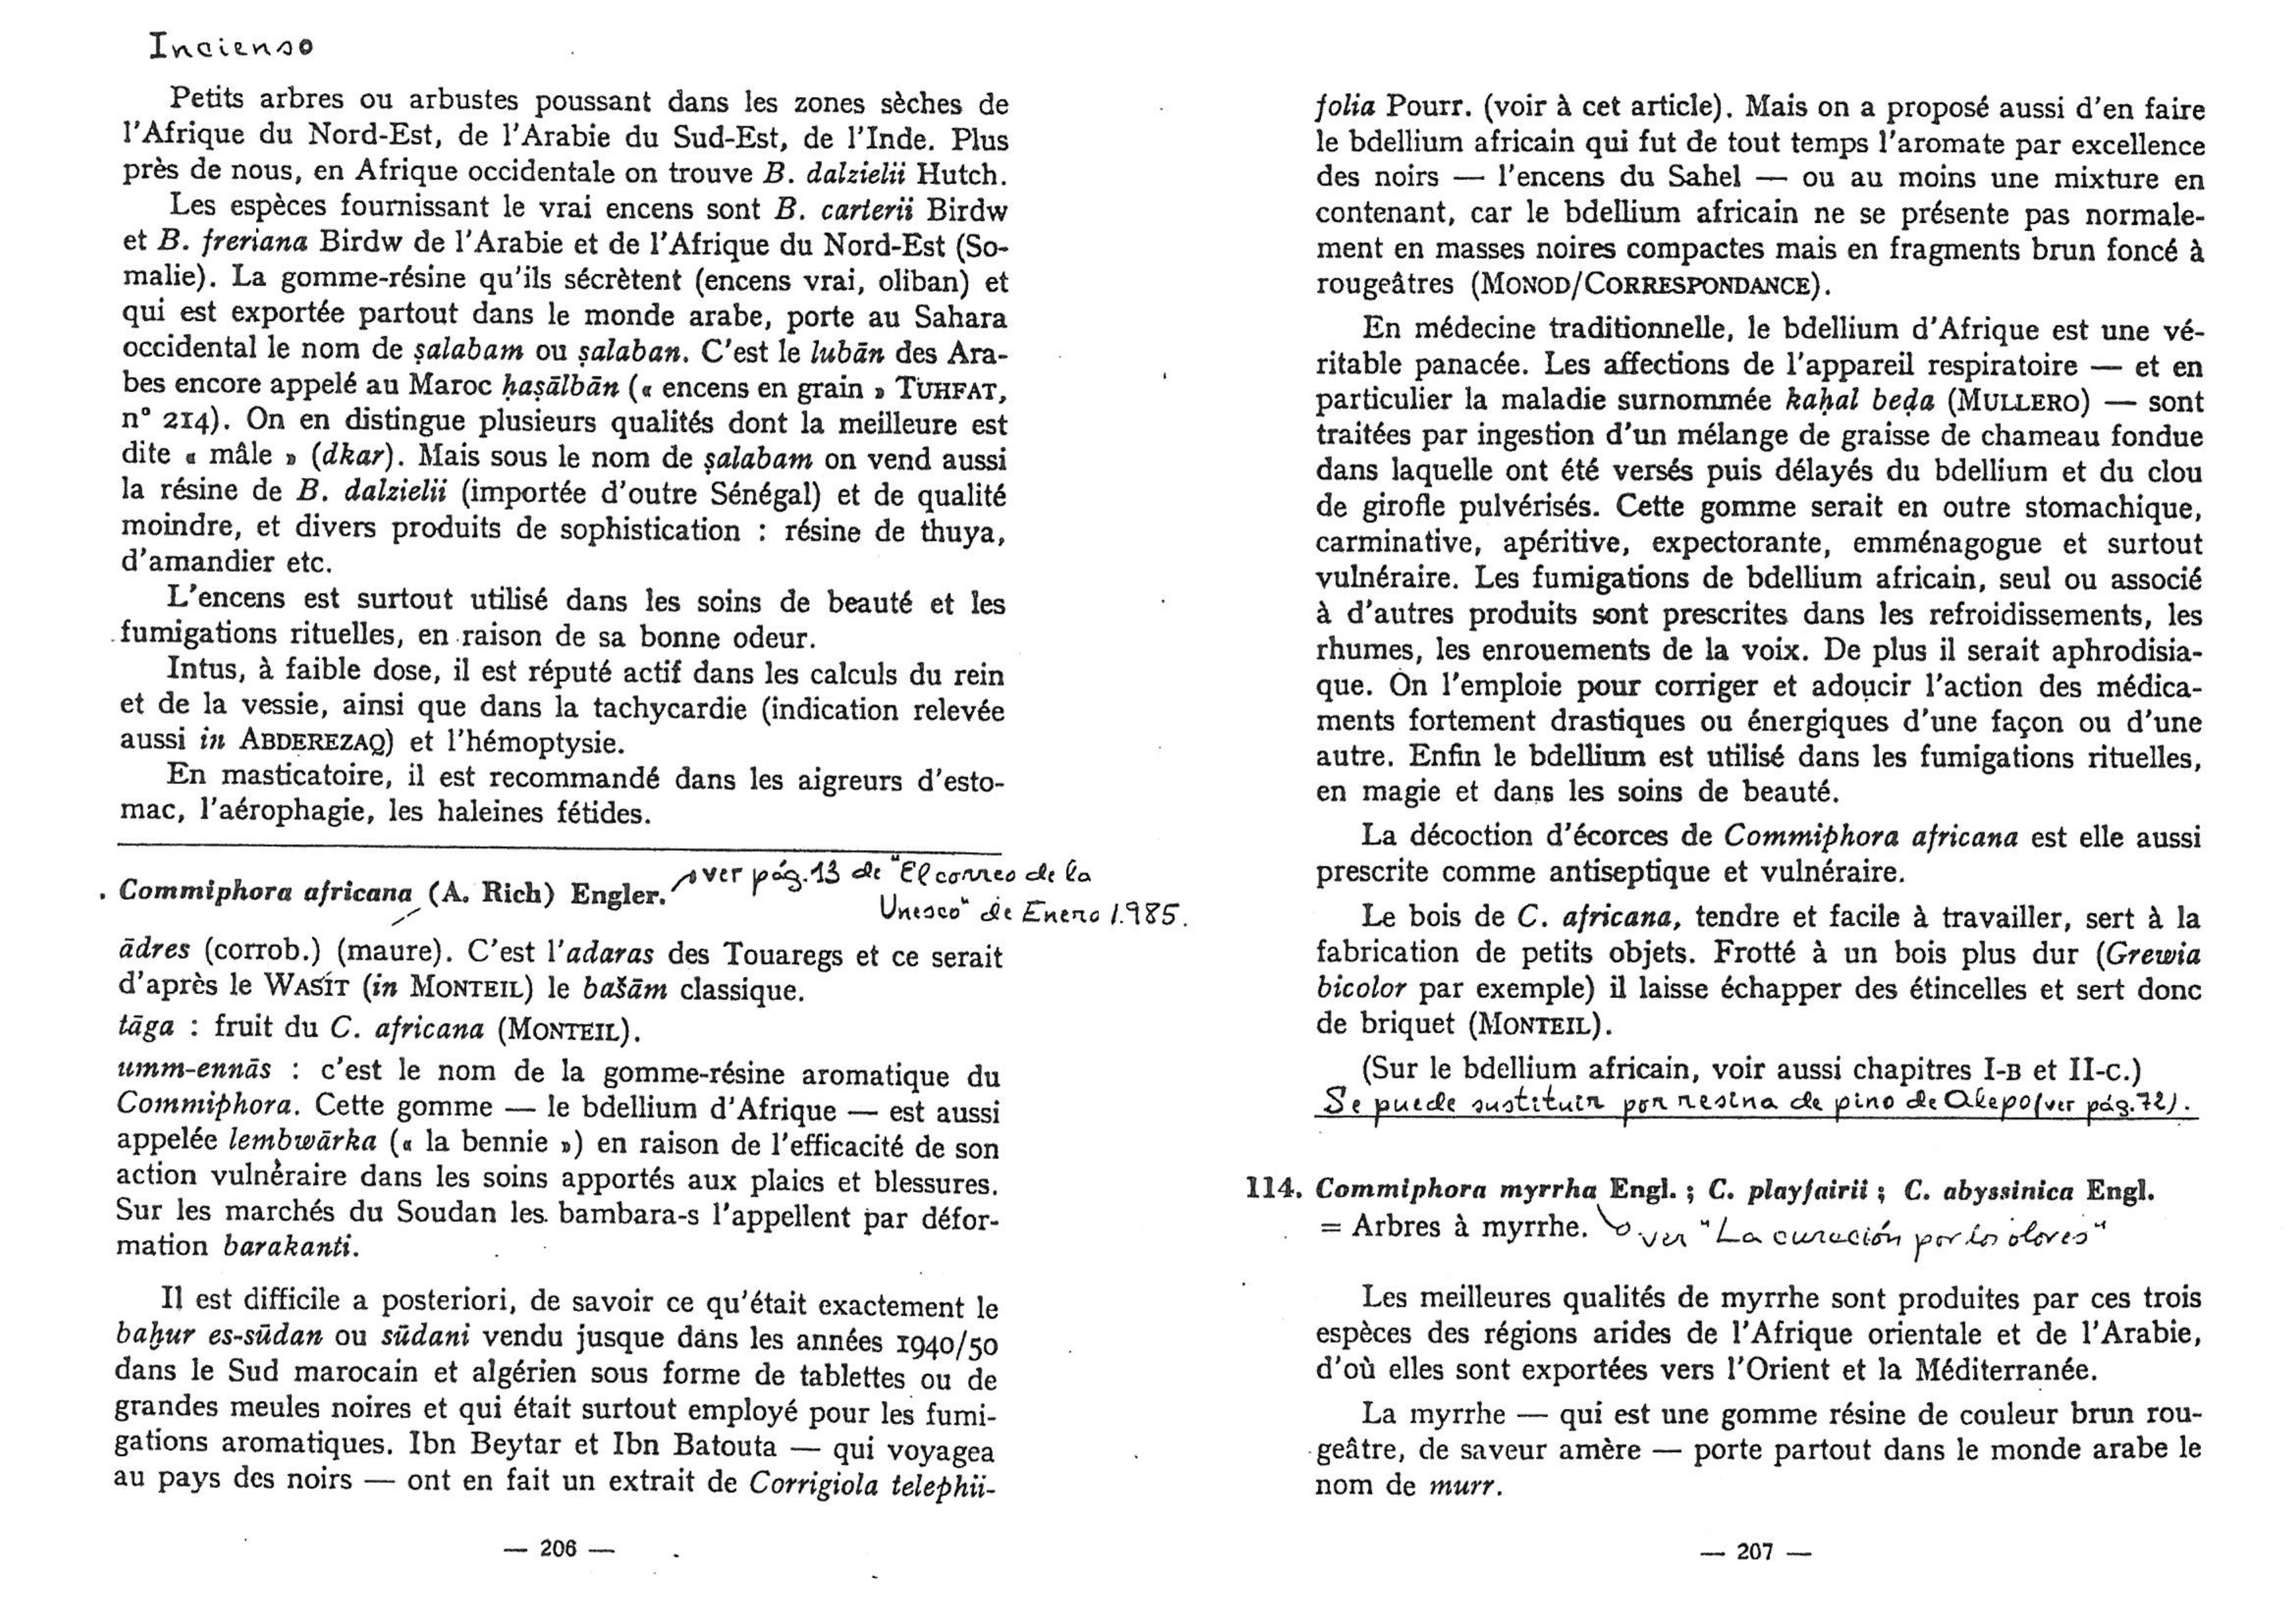 Incienso
Petits arbres ou arbustes poussant dans les zones sèches de
l'Afrique du Nord-Est, de l'Arabie du Sud-Est, de l'Inde. Plus
près de nous, en Afrique occidentale on trouve B. dalzielii Hutch.
Les espèces fournissant le vrai encens sont B. carterii Birdw
et B. freriana Birdw de l'Arabie et de l'Afrique du Nord-Est (So-
malie). La gomme-résine qu'ils sécrètent (encens vrai, oliban) et
qui est exportée partout dans le monde arabe, porte au Sahara
occidental le nom de ṣalabam ou ṣalaban. C'est le lubān des Ara-
bes encore appelé au Maroc ḥaṣālbān (« encens en grain » TUHFAT,
n° 214). On en distingue plusieurs qualités dont la meilleure est
dite « mâle » (dkar). Mais sous le nom de ṣalabam on vend aussi
la résine de B. dalzielii (importée d'outre Sénégal) et de qualité
moindre, et divers produits de sophistication : résine de thuya,
d'amandier etc.
L'encens est surtout utilisé dans les soins de beauté et les
fumigations rituelles, en raison de sa bonne odeur.
Intus, à faible dose, il est réputé actif dans les calculs du rein
et de la vessie, ainsi que dans la tachycardie (indication relevée
aussi in ABDEREZAQ) et l'hémoptysie.
En masticatoire, il est recommandé dans les aigreurs d'esto-
mac, l'aérophagie, les haleines fétides.
Commiphora africana (A. Rich) Engler. ver pág. 13 de "El correo de la
Unesco" de Enero 1.985.
ādres (corrob.) (maure). C'est l'adaras des Touaregs et ce serait
d'après le WASÍT (in MONTEIL) le bašām classique.
tāga : fruit du C. africana (MONTEIL).
umm-ennās : c'est le nom de la gomme-résine aromatique du
Commiphora. Cette gomme — le bdellium d'Afrique — est aussi
appelée lembwārka (« la bennie ») en raison de l'efficacité de son
action vulnéraire dans les soins apportés aux plaies et blessures.
Sur les marchés du Soudan les bambara-s l'appellent par défor-
mation barakanti.
Il est difficile a posteriori, de savoir ce qu'était exactement le
baḫur es-sūdan ou sūdani vendu jusque dans les années 1940/50
dans le Sud marocain et algérien sous forme de tablettes ou de
grandes meules noires et qui était surtout employé pour les fumi-
gations aromatiques. Ibn Beytar et Ibn Batouta — qui voyagea
au pays des noirs — ont en fait un extrait de Corrigiola telephii-
— 206 —
folia Pourr. (voir à cet article). Mais on a proposé aussi d'en faire
le bdellium africain qui fut de tout temps l'aromate par excellence
des noirs — l'encens du Sahel — ou au moins une mixture en
contenant, car le bdellium africain ne se présente pas normale-
ment en masses noires compactes mais en fragments brun foncé à
rougeâtres (MONOD/CORRESPONDANCE).
En médecine traditionnelle, le bdellium d'Afrique est une vé-
ritable panacée. Les affections de l'appareil respiratoire — et en
particulier la maladie surnommée kaḥal beḍa (MULLERO) — sont
traitées par ingestion d'un mélange de graisse de chameau fondue
dans laquelle ont été versés puis délayés du bdellium et du clou
de girofle pulvérisés. Cette gomme serait en outre stomachique,
carminative, apéritive, expectorante, emménagogue et surtout
vulnéraire. Les fumigations de bdellium africain, seul ou associé
à d'autres produits sont prescrites dans les refroidissements, les
rhumes, les enrouements de la voix. De plus il serait aphrodisia-
que. On l'emploie pour corriger et adoucir l'action des médica-
ments fortement drastiques ou énergiques d'une façon ou d'une
autre. Enfin le bdellium est utilisé dans les fumigations rituelles,
en magie et dans les soins de beauté.
La décoction d'écorces de Commiphora africana est elle aussi
prescrite comme antiseptique et vulnéraire.
Le bois de C. africana, tendre et facile à travailler, sert à la
fabrication de petits objets. Frotté à un bois plus dur (Grewia
bicolor par exemple) il laisse échapper des étincelles et sert donc
de briquet (MONTEIL).
(Sur le bdellium africain, voir aussi chapitres I-B et II-C.)
Se puede sustituir por resina de pino de Alepo (ver pág. 72).
114. Commiphora myrrha Engl. ; C. playfairii ; C. abyssinica Engl.
= Arbres à myrrhe. ver "La curación por los olores"
Les meilleures qualités de myrrhe sont produites par ces trois
espèces des régions arides de l'Afrique orientale et de l'Arabie,
d'où elles sont exportées vers l'Orient et la Méditerranée.
La myrrhe — qui est une gomme résine de couleur brun rou-
geâtre, de saveur amère — porte partout dans le monde arabe le
nom de murr.
— 207 —